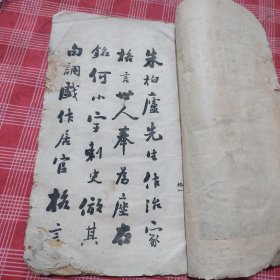 朱柏廬先生作治家
格言世人奉為座右
銘何小宇刺史倣其
句調戲作居官格言